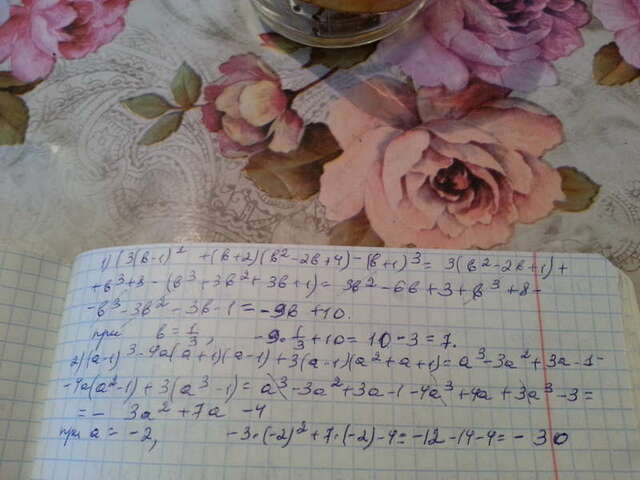 1) (3(b-1)² + (b+2)(b²-2b+4) - (b+1)³ = 3(b²-2b+1) +
+b³+8 - (b³+3b²+3b+1) = 3b²-6b+3+b³+8-
-b³-3b²-3b-1 = -9b+10.
при b = 1/3, -9·1/3+10 = 10-3 = 7.
2) (a-1)³-4a(a+1)(a-1)+3(a-1)(a²+a+1) = a³-3a²+3a-1-
-4a(a²-1)+3(a³-1) = a³-3a²+3a-1-4a³+4a+3a³-3=
= - 3a²+7a-4
при a = -2, -3·(-2)²+7·(-2)-4 = -12-14-4 = -30